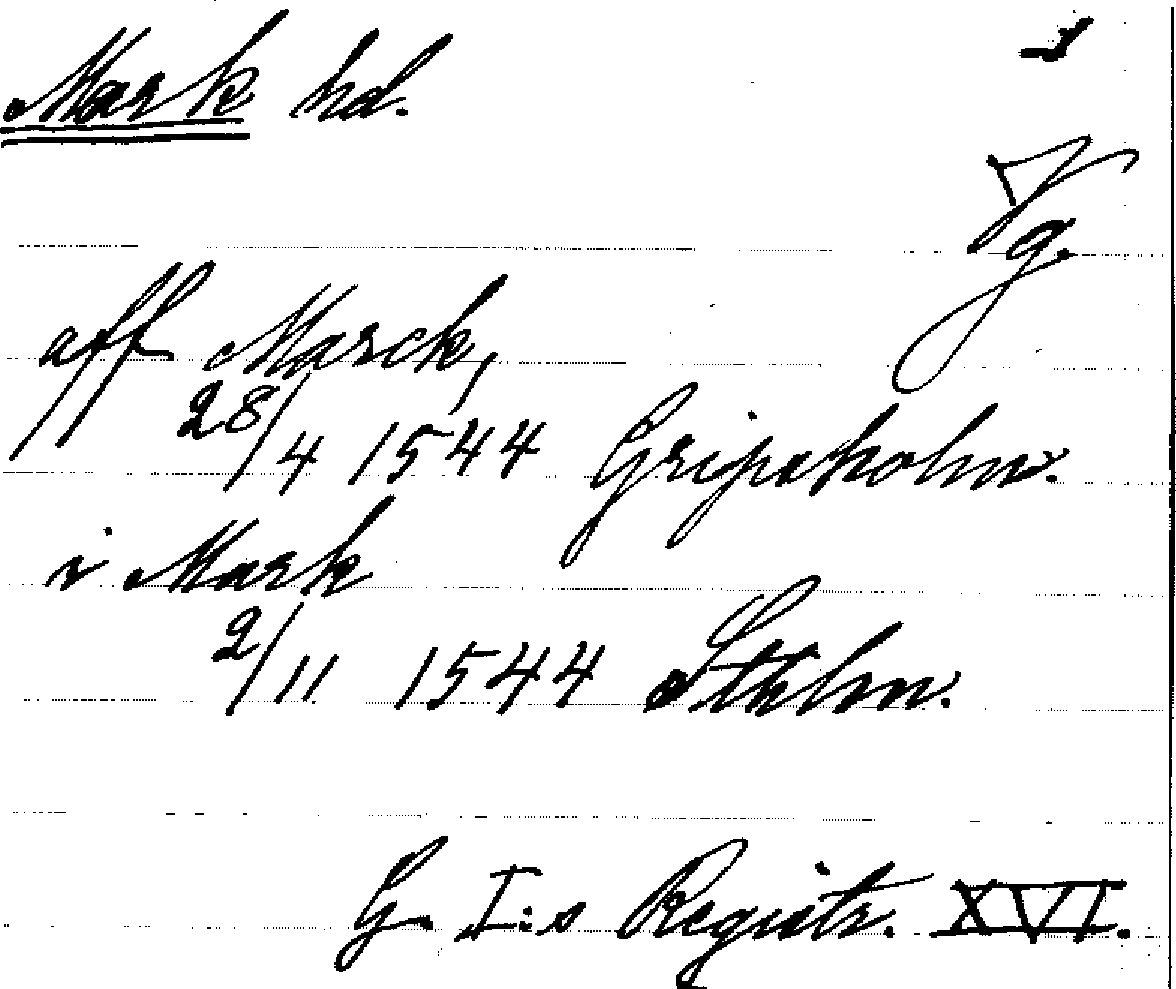 Mark hd.
Vg.
aff Marck,
28/4 1544 Gripsholm.
i Mark
2/11 1544 Sthlm.
G. I:s Registr. XVI.